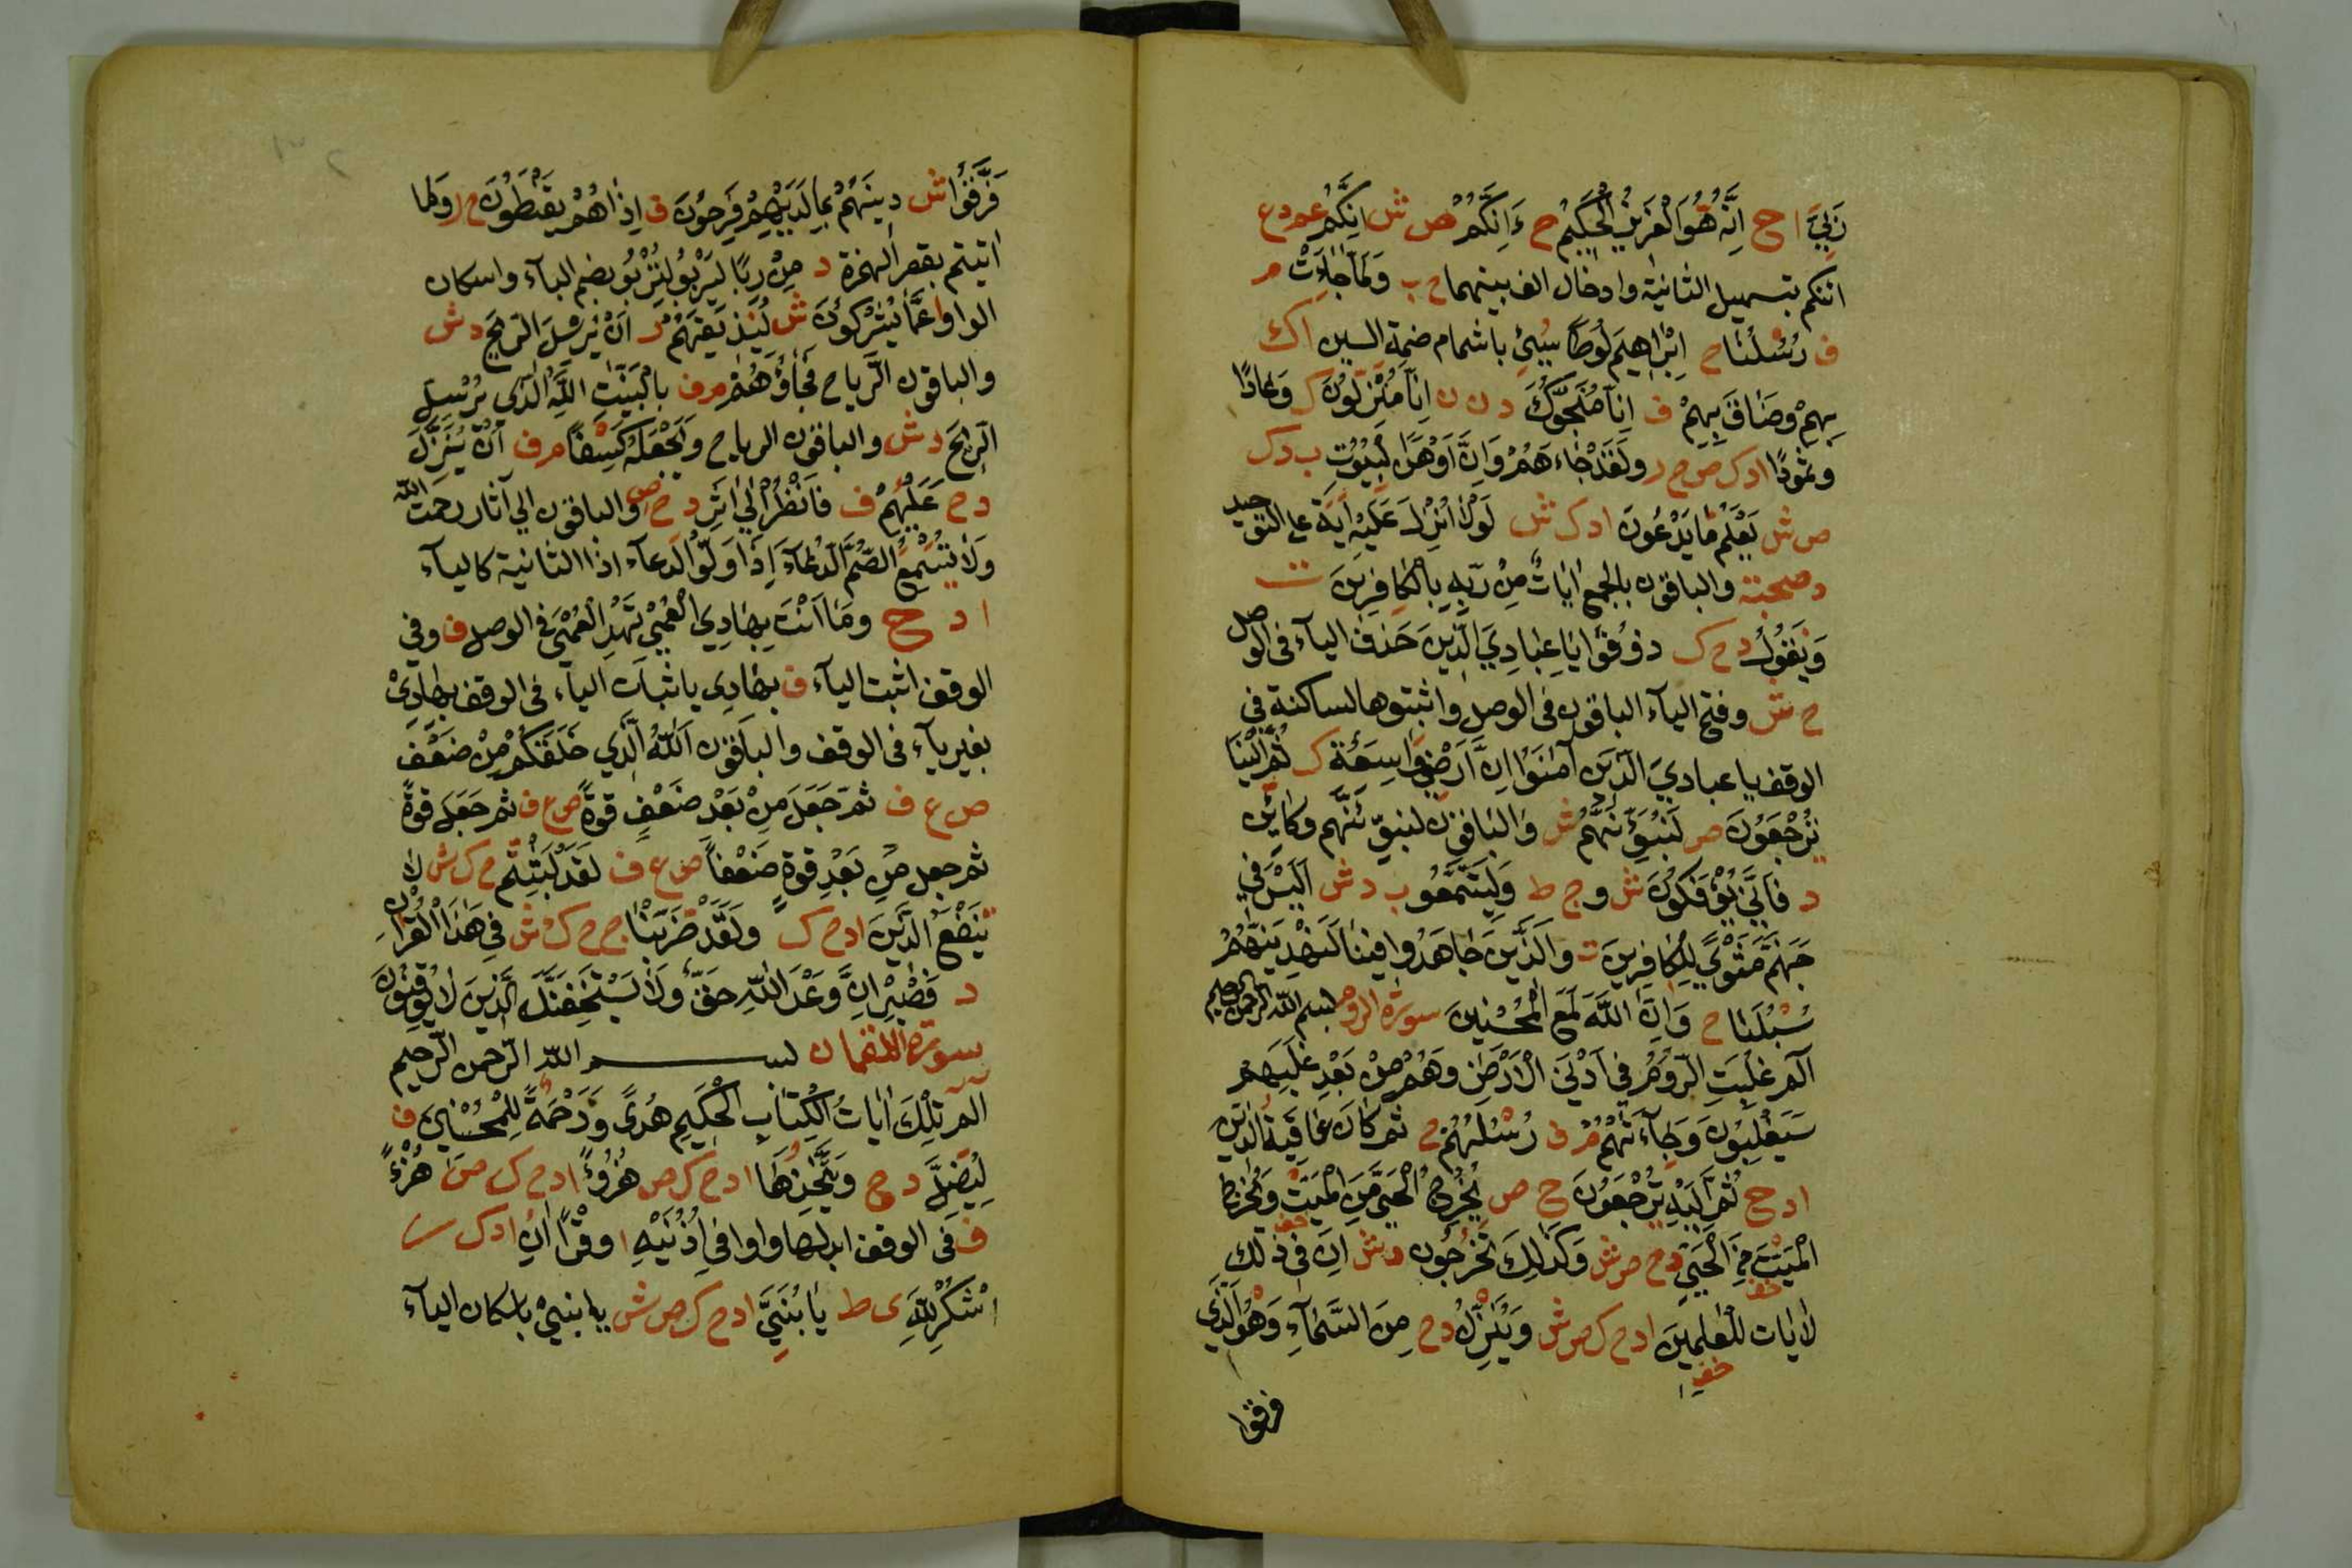 رَبِّيَ ا ح اِنَّهُ هُوَ الْعَزِيزُ الْحَكِيمُ ح ءَاِنَّكُمْ ص ش اِنَّكُمْ ع د ع
ائنكم بتسهيل الثانية وادخال الف بينهما ح ب وَلَمَّا جَاءَتْ م
ف رُسُلْنَا ح اِبْرَاهِيمَ لُوطًا سِيءَ باشمام ضمة السين ا ك
بِهِمْ وضَاقَ بِهِمْ ف اِنَّا مُنَجُّوكَ د ن ن اِنَّا مُنْزِلُونَ ك وَعَادًا
وثمودًا ا د ك ص ح ر ولَقَدْ جَاءَهُمْ وَاِنَّ اَوْهَنَ الْبُيُوتِ ب د ك
ص ش يَعْلَمُ مَا يَدْعُونَ ا د ك ش لَوْلَا اُنْزِلَ عَلَيْهِ اٰيَةٌ على التوحيد
د صحبة والباقون بالجمع اٰيَاتٌ مِنْ رَبِّهِ بِالْكَافِرِينَ ت
وَنَقُولُ د ح ك ذُوقُوا يَا عِبَادِيَ الَّذِينَ حَذف اليآء فى الوصل
ح ش وفتح اليآء الباقون فى الوصل واثبتوها لساكنة فى
الوقف يا عبادِيَ الَّذِينَ آمَنُوا اِنَّ اَرْضِي وَاسِعَةٌ ك ثُمَّ اِلَيْنَا
تُرْجَعُونَ ص لَنُبَوِّئَنَّهُمْ ش والباقون لنبوّئنّهم وكاَيِّن
د فَاَنّٰى يُؤْفَكُونَ ش و ج ط وَلِيَتَمَتَّعُوا ب د ش اَلَيْسَ فِي
جَهَنَّمَ مَثْوًى لِلْكَافِرِينَ ت وَالَّذِينَ جَاهَدُوا فِينَا لَنَهْدِيَنَّهُمْ
سُبْلَنَا ح وَاِنَّ اللّٰهَ لَمَعَ الْمُحْسِنِينَ سورة الروم بسم الله الرحمن الرحيم
الٓمّ غُلِبَتِ الرُّومُ فِي اَدْنَى الْاَرْضِ وَهُمْ مِنْ بَعْدِ غَلَبِهِمْ
سَيَغْلِبُونَ وَجَآءَتْهُمْ م ف رُسُلُهُمْ ح ثم كَانَ عَاقِبَةُ الَّذِينَ
ا د ح ثُمَّ اِلَيْهِ تُرْجَعُونَ ح ص يُخْرِجُ الْحَيَّ مِنَ الْمَيِّتِ وَيُخْرِجُ
الْمَيِّتَ مِنَ الْحَيِّ د ح ص ش وَكَذٰلِكَ تُخْرَجُونَ م ش اِنَّ فِي ذٰلِكَ
لَاٰيَاتٍ لِلْعٰلَمِينَ ا د ح ك ص ش وَيُنْزِلُ د ح مِنَ السَّمَآءِ وَهُوَ الَّذِي
فرقوا
فَرَّقُوا ش دِينَهُمْ بِمَا لَدَيْهِمْ فَرِحُونَ ف اِذَا هُمْ يَقْنَطُونَ ح ر وَمَا
اتيتم بقصر الهمزة د مِنْ رِبًا لِيَرْبُو لِتُرْبُو بضم التآء واسكان
الواو ا عَمَّا يُشْرِكُونَ ش لِيُذِيقَهُمْ ز اَنْ يُرْسِلَ الرِّيحَ د ش
والباقون الرِّياح فَجَاؤُهُمْ م ف بِالْبَيِّنٰتِ اللّٰهُ الَّذِي يُرْسِلُ
الرِّيحَ د ش والباقون الرياح وَيَجْعَلُهُ كِسْفًا م ف اَنْ يُنَزَّلَ
د ح عَلَيْهُمْ ف فَانْظُرْ اِلٰى اَثَرِ د ح ص والباقون الى آثار رحمت الله
وَلَا تُسْمِعُ الصُّمَّ الدُّعَآءَ اِذَا وَلَّوْا الدعآء اذا الثانية كاليآء
ا د ح وَمَا اَنْتَ بِهَادِي الْعُمْيِ تَهْدِ الْعُمْيَ فى الوصل ف وفى
الوقف اثبت اليآء ف بهَادِي باثبات اليآء فى الوقف بهَادِيْ
بغير يآء فى الوقف والباقون اَللّٰهُ الَّذِي خَلَقَكُمْ مِنْ ضَعْفٍ
ص ع ف ثمّ جَعَلَ مِنْ بَعْدِ ضَعْفٍ قوةً ص ع ف ثم جَعَلَ قوةً
ثم جعل مِنْ بَعْدِ قوةٍ ضَعْفًا ص ع ف لَقَدْ لَبِثْتُمْ ح ك ش لا
يَنْفَعُ الَّذِينَ ا د ح ك وَلَقَدْ ضَرَبْنَا ج ح ك ش فِي هٰذَا الْقُرْاٰنِ
د فَاصْبِرْ اِنَّ وَعْدَ اللّٰهِ حَقٌّ وَلَا يَسْتَخِفَّنَّكَ الَّذِينَ لَا يُوقِنُونَ
سورة اللقمان بســـم الله الرّحمن الرّحيم
الٓمّ تِلْكَ اٰيَاتُ الْكِتَابِ الْحَكِيمِ هُدًى وَرَحْمَةً لِلْمُحْسِنِينَ ف
لِيَضِلَّ د ح وَيَتَّخِذُهَا ا د ح ك ص هُزُوءً ا د ح ك ص هُزْءً
ف فى الوقف ابدلها واوا فِي اُذُنَيْهِ ا وقْرًا اَنِ ا د ك س
اشْكُرْ لِلّٰهِ ى ط يَا بُنَيَّ ا د ح ك ص ش يا بنيْ باسكان اليآء